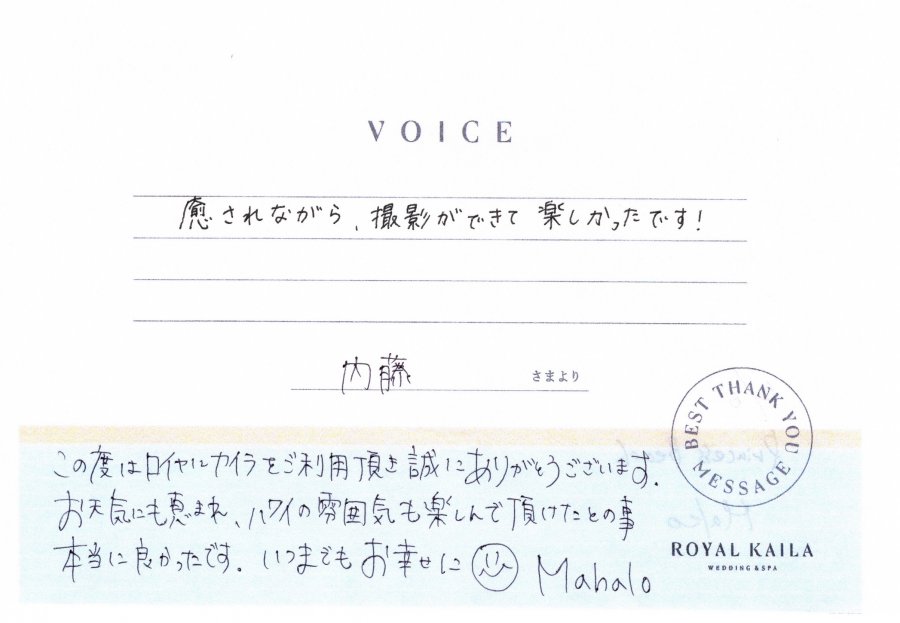 VOICE
癒されながら、撮影ができて 楽しかったです!
内藤 さまより
BEST THANK YOU MESSAGE
この度はロイヤルカイラをご利用頂き誠にありがとうございます。
お天気にも恵まれ、ハワイの雰囲気も楽しんで頂けたとの事
本当に良かったです。いつまでもお幸せに Mahalo
ROYAL KAILA
WEDDING & SPA